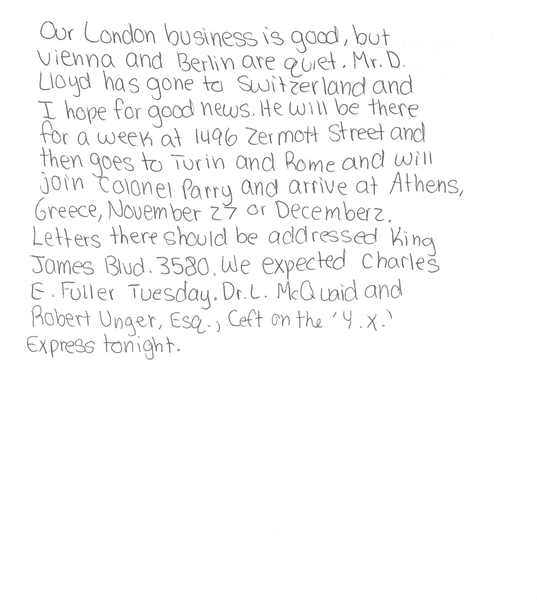 Our London business is good, but
Vienna and Berlin are quiet. Mr. D.
Lloyd has gone to Switzerland and
I hope for good news. He will be there
for a week at 1496 Zermott Street and
then goes to Turin and Rome and will
join Colonel Parry and arrive at Athens,
Greece, November 27 or December 2.
Letters there should be addressed King
James Blvd. 3580. We expected Charles
E. Fuller Tuesday. Dr. L. McQuaid and
Robert Unger, Esq., Left on the 'Y.X.'
Express tonight.